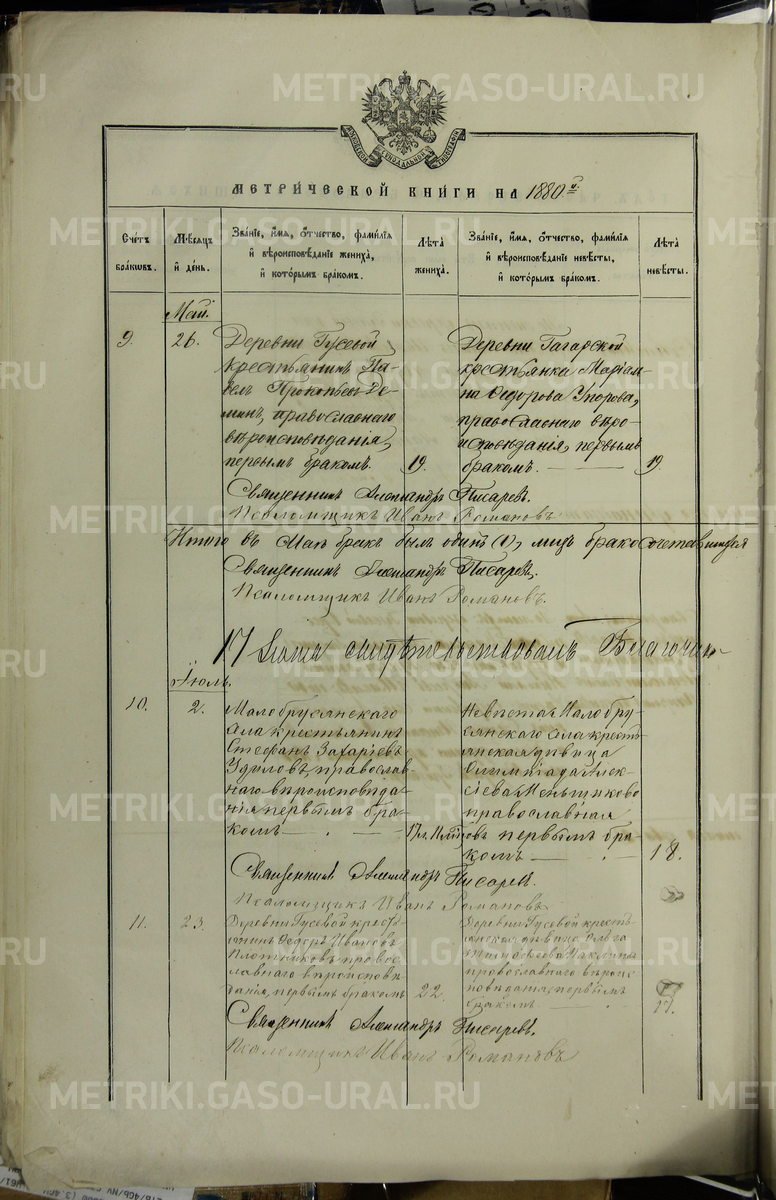 METRIKI.GASO-URAL.RU
МЕТРИ́ЧЕСКОЙ КНИ́ГИ НА 1880 й.
Сче́тъ бра́ковъ.
Мѣ́сяцъ и де́нь.
Зва́нїе, и́мя, о́тчество, фами́лїя и вѣроисповѣ́данїе жениха̀, и кото́рымъ бра́комъ.
Лѣ́та жениха̀.
Зва́нїе, и́мя, о́тчество, фами́лїя и вѣроисповѣ́данїе невѣ́сты, и кото́рымъ бра́комъ.
Лѣ́та невѣ́сты.
Май.
9.
26.
Деревни Гусевой
крестьянинъ Па-
велъ Прокопьевъ Де-
минъ, православнаго
вѣроисповѣданія,
первымъ бракомъ.
19.
Деревни Гагарской
крестьянка Маріам-
на Ѳедорова Упорова,
православнаго вѣро-
исповѣданія, первымъ
бракомъ.
19.
Священникъ Александръ Писаревъ.
Псаломщикъ Иванъ Романовъ
Итого въ Маѣ бракъ былъ одинъ (1), лицъ бракосочетавшихся
Священникъ Александръ Писаревъ.
Псаломщикъ Иванъ Романовъ.
17 свидѣтельствовалъ Благочин-
Іюль.
10.
2.
Малобрусянскаго
села крестьянинъ
Стефанъ Захаріевъ
Удиловъ, православ-
наго вѣроисповѣда-
нія первымъ бра-
комъ
17
Невѣста Малобру-
сянскаго села кресть-
янская дѣвица
Олимпіада Алек-
сіева Меньщиково
православная
первымъ бра-
комъ
18.
Священникъ Александръ Писаревъ.
Псаломщикъ Иванъ Романовъ
11.
23.
Деревни Гусевой кресть-
янинъ Ѳедоръ Ивановъ
Плотниковъ право-
славнаго вѣроисповѣ-
данія, первымъ бракомъ
22.
Деревни Гусевой кресть-
янская дѣвица Ольга
православнаго вѣроис-
повѣданія первымъ
бракомъ
17.
Священникъ Александръ Писаревъ.
Псаломщикъ Иванъ Романовъ